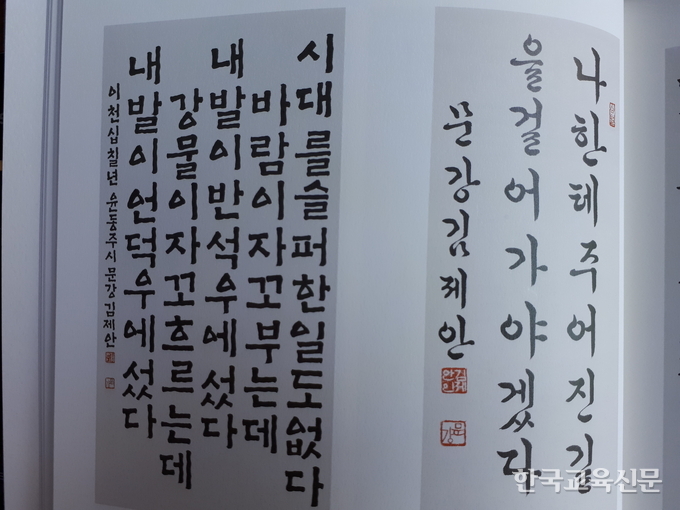 나한테주어진길
을걸어가야겠다
문강김제안
김제안인
문강
시대를슬퍼한일도없다
바람이자꼬부는데
내발이반석우에섰다
강물이자꼬흐르는데
내발이언덕우에섰다
이천십칠년 윤동주시 문강 김제안
한국교육신문